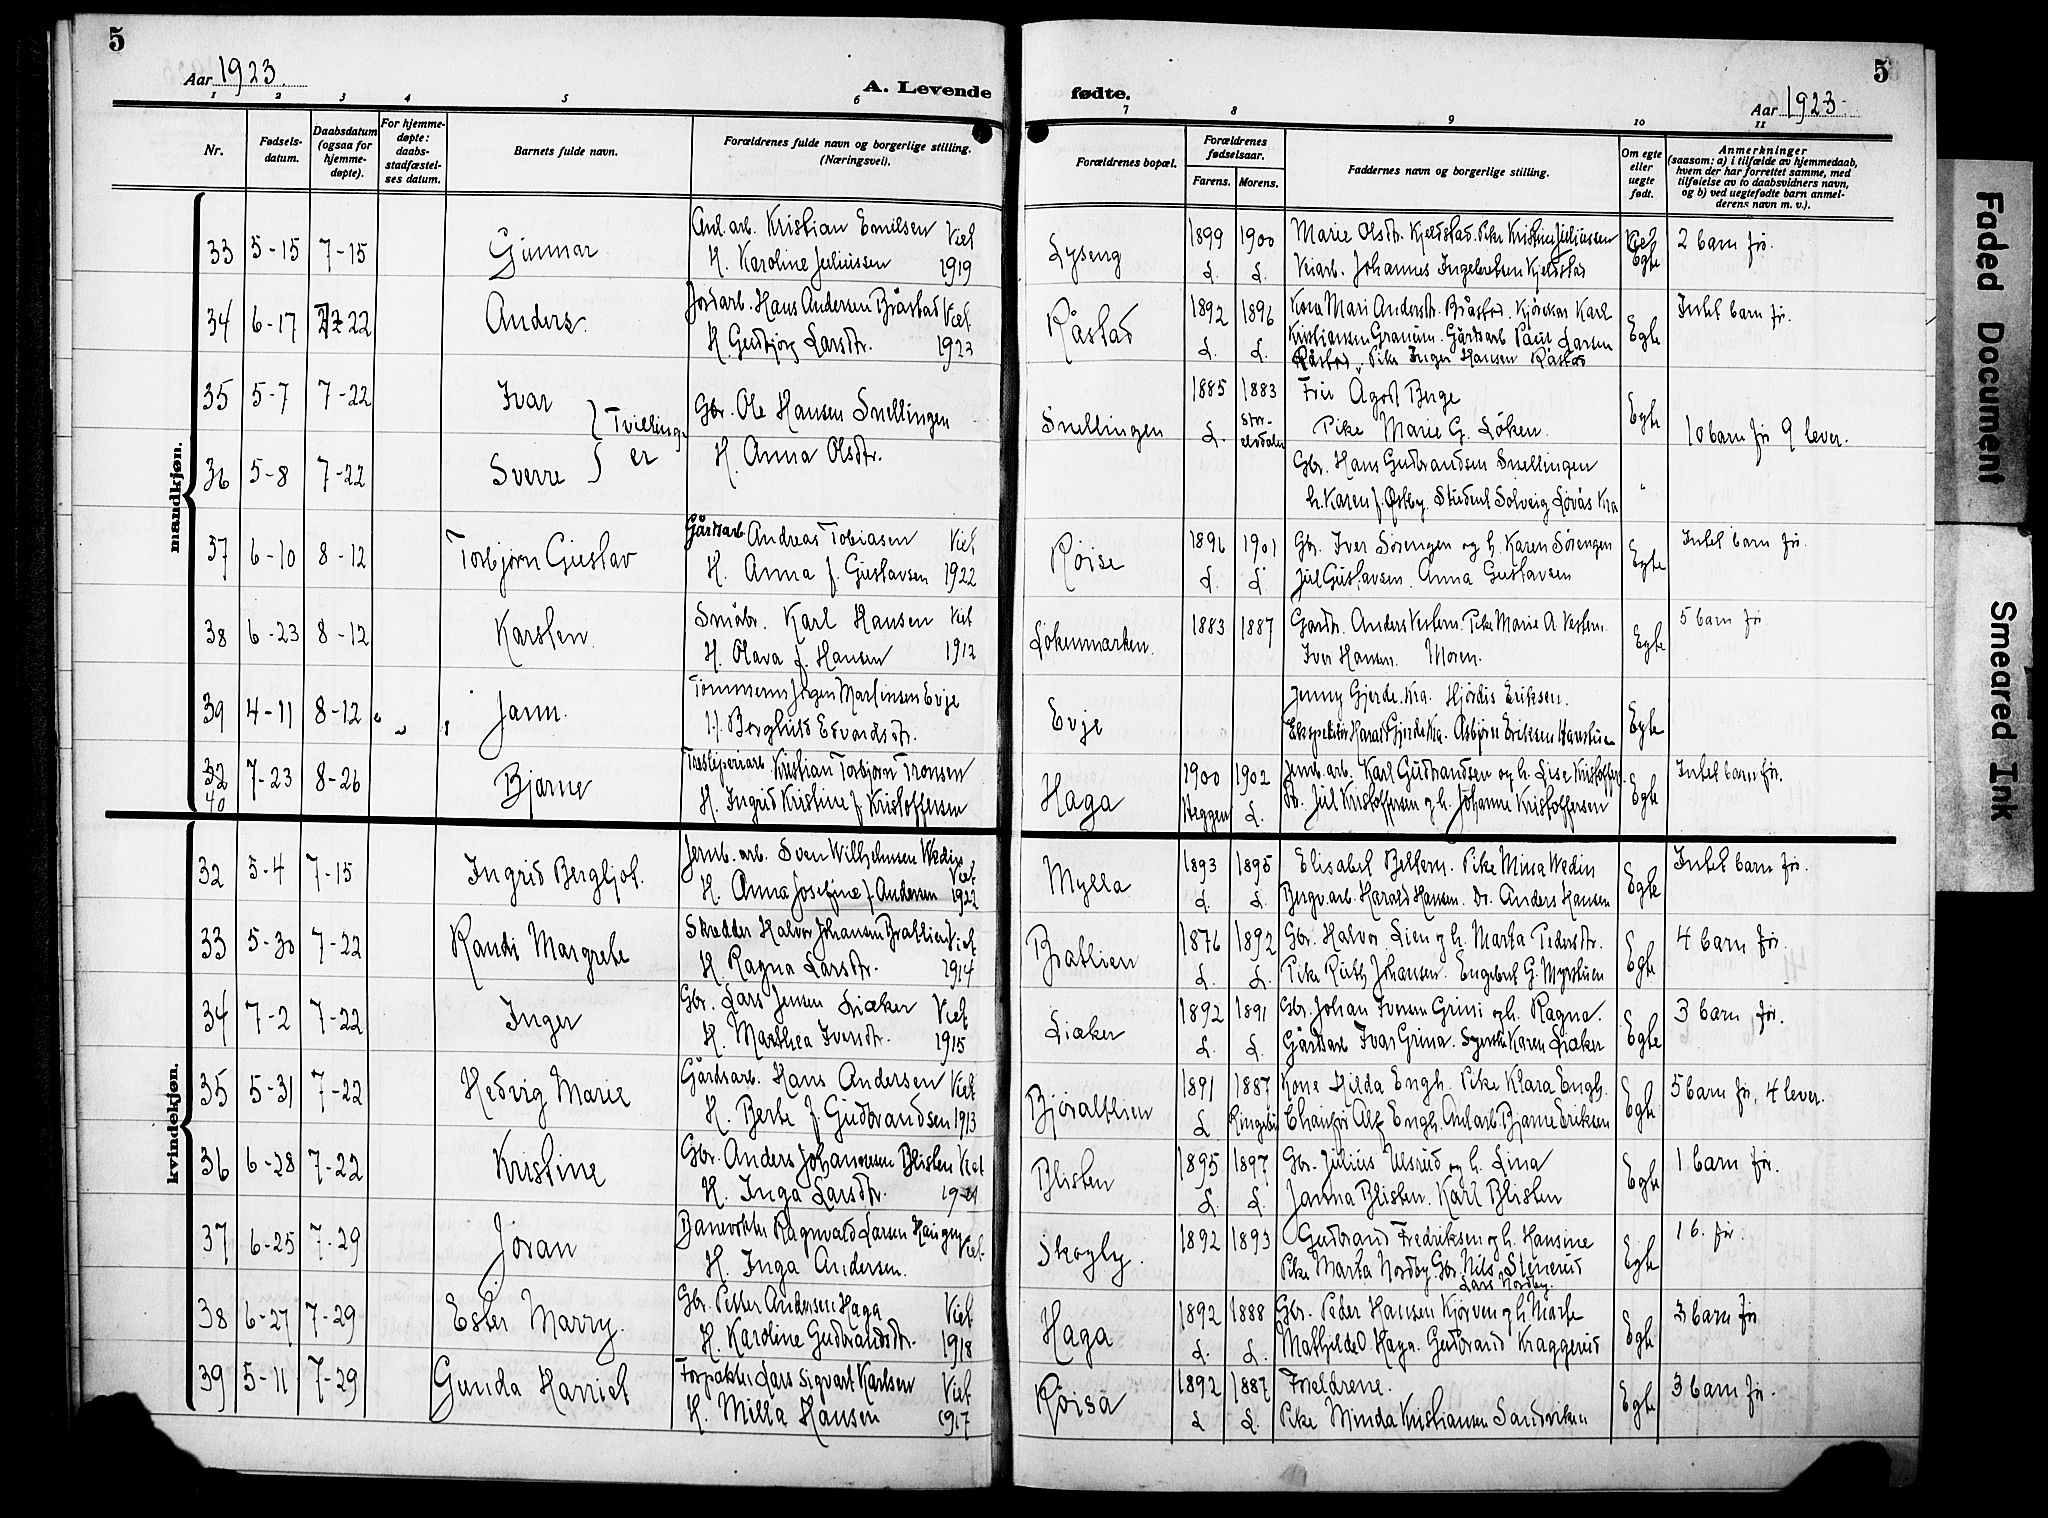 5
Aar 1923.
A. Levende fødte.
5
Aar 1923.
1 2 3 4 5 6 7 8 9 10 11
Nr.
Fødsels-
datum.
Daabsdatum
(ogsaa for
hjemme-
døpte).
For hjemme-
døpte:
daabs-
stadfæstel-
ses datum.
Barnets fulde navn.
Forældrenes fulde navn og borgerlige stilling.
(Næringsvei).
Forældrenes bopæl.
Forældrenes
fødselsaar.
Farens. Morens.
Faddernes navn og borgerlige stilling.
Om egte
eller
uegte
født.
Anmerkninger
(saasom: a) i tilfælde av hjemmedaab,
hvem der har forrettet samme, med
tilføielse av to daabsvidners navn,
og b) ved uegtefødte barn anmel-
derens navn m. v.).
mandkjøn.
33 5-15 7-15 Gunnar Anl. arb. Kristian Emilsen Viet
H. Karoline Juliussen 1919
Lyseng 1899 1900 Marie Olsdtr. Kjeldstad. Pike Kristine Juliussen Egte 2 barn før.
L. L. Johannes Ingebretsen Kjeldstad
34 6-17 7-22 Anders. Jordarb. Hans Andersen Bråstad Viet
H. Gudbjørg Larsdtr. 1923
Råstad 1892 1896 Kona Mari Andersdtr. Bråstad. Karl Egte Intet barn før.
L. L. Kristiansen Granum. Gårdsarb Paul Larsen
Råstad, Pike Inger Hansen Råstad
35 5-7 7-22 Ivar
36 5-8 7-22 Sverre
Tvilling-
er
Gbr. Ole Hansen Snellingen
H. Anna Olsdtr.
Snellingen 1885 1883 Frü Agot Berge Egte
L. Stor-
elvdalen Pike Marie G. Løken. 10 barn før 9 lever.
Gbr. Hans Gudbrandsen Snellingen
h. Karen f. Østby. Student Solveig Løvås Kra "
37 6-10 8-12 Torbjørn Gustav Gårdsarb Andreas Tobiasen Viet
H. Anna f. Gustavsen 1922
Røise 1896 1901 Gbr. Iver Sørengen og h. Karen Sørengen Egte Intet barn før.
L. L. Jul Gustavsen. Anna Gustavsen
38 6-23 8-12 Karsten. Småbr. Karl Hansen Viet
H. Olava f. Hansen 1912
Løkenmarken. 1883 1887 Gardbr. Anders Vestern. Pike Marie A Vestern. Egte 5 barn før
Iver Hansen. Moren.
39 4-11 8-12 Jann. Tømmerm Jørgen Martinsen Evje
H. Borghild Edvardsdtr.
Evje Jenny Gjerde. Kra. Hjørdis Eriksen. Egte
Ekspeditør Harald Gjerde Kra. Asbjørn Eriksen
32
40 7-23 8-26 Bjarne Kristian Torbjørn Tronsen
H. Ingrid Kristine f Kristoffersen
Haga 1900 1902 Jernb. arb. Karl Gudbrandsen og h. Lise Kristoffers. Egte Intet barn før.
Heggen L. Do. Jul Kristoffersen og h. Johanne Kristoffersen
kvindekjøn.
32 5-4 7-15 Ingrid Bergljot. Jernb. arb. Sven Wilhelmsen Wedin Viet
H. Anna Josefine f Andersen 1922
Mylla 1893 1895 Elisabet Pike Mina Wedin Egte Intet barn før.
L. L. Bergv.arb. Harald Hansen. Do. Anders Hansen
33 5-30 7-22 Randi Margrete Skredder Halvor Johansen Bratlien Viet
H. Ragna Larsdtr. 1914
Bratlien 1876 1892 Gbr. Halvor Lien og h. Marta Pedersdtr. Egte 4 barn før.
L. L. Pike Ruth Johansen. Engebret G. Myrstuen
34 7-2 7-22 Inger Gbr. Lars Jensen Liæker Viet
H. Marthea Iversdtr. 1915
Liæker 1892 1891 Gbr. Johan Iversen Grini og h. Ragna. Egte 3 barn før.
L. L. Gårdsarb Ivar Grina. Karen Liæker
35 5-31 7-22 Hedvig Marie Gårdsarb. Hans Andersen Viet
H. Berte f Gudbrandsen 1913
Bjøraltlien 1891 1887 Kone Hilda Engh. Pike Klara Engh. Egte 5 barn før, 4 lever.
L Ringebu Chauffør Alf Engh. Anl.arb Bjarne Eriksen
36 6-28 7-22 Kristine Gbr. Anders Johannesen Blisten Viet
H. Inga Larsdtr. 1921
Blisten 1895 1897 Gbr. Julius Ulsrud og h. Lina Egte 1 barn før.
L. L. Janna Blisten. Karl Blisten
37 6-25 7-29 Jøran Banevokter Ragnvald Larsen Haugen Viet.
H. Inga Andersen.
Skogly. 1892 1893 Gudbrand Fredriksen og h. Hansine Egte 1 b. før.
Pike Marta Nordby Gbr. Nils Stenerud
Lars Nordby.
38 6-27 7-29 Ester Marry. Gbr. Petter Andersen Haga Viet
H. Karoline Gudbrandsdtr. 1918
Haga 1892 1888 Gbr. Peder Hansen Kjørven og h. Marte Egte 3 barn før
L. L. Mathilde O. Haga. Gudbrand Kraggerud
39 5-11 7-29 Gunda Harriet Forpakter Lars Sigvart Karlsen Viet
H. Milla Hansen 1917
Røisa 1892 1887 Foreldrene. Egte 3 barn før.
L L. Pike Minda Kristiansen Sandviken
Faded Document
Smeared Ink